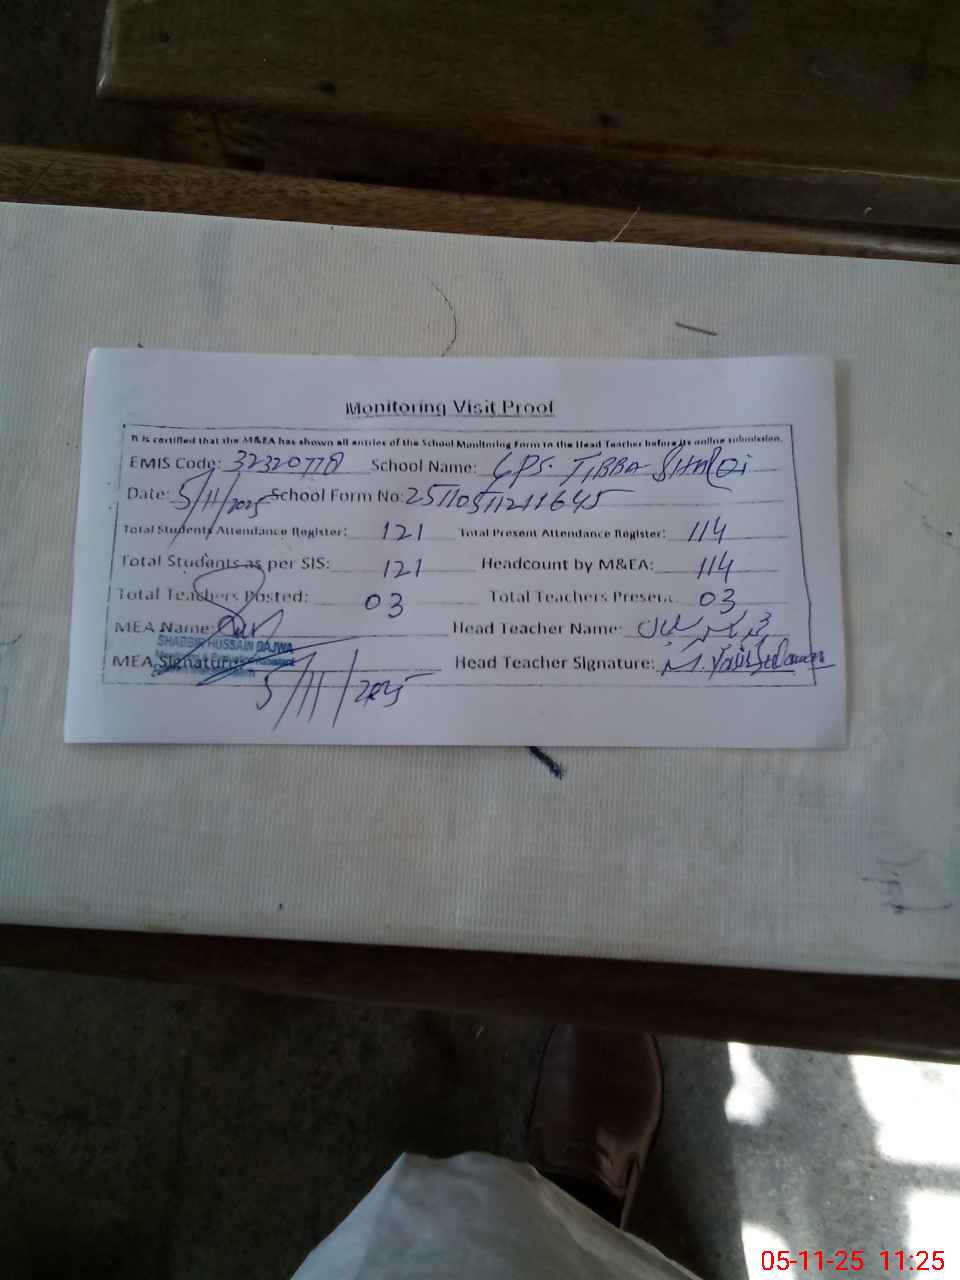 Monitoring Visit Proof
It is certified that the M&EA has shown all entries of the School Monitoring Form to the Head Teacher before its online submission.
EMIS Code: 32320778 School Name: GPS. TIBBA SHARQI
Date: 5/11/2025 School Form No: 25110511211645
Total Students Attendance Register: 121 Total Present Attendance Register: 114
Total Students as per SIS: 121 Headcount by M&EA: 114
Total Teachers Posted: 03 Total Teachers Present: 03
MEA Name: Head Teacher Name: محمد یاسر سلمان
SHABBIR HUSSAIN DAJWA
MEA Signature: Head Teacher Signature: M.
5/11/2025
05-11-25 11:25